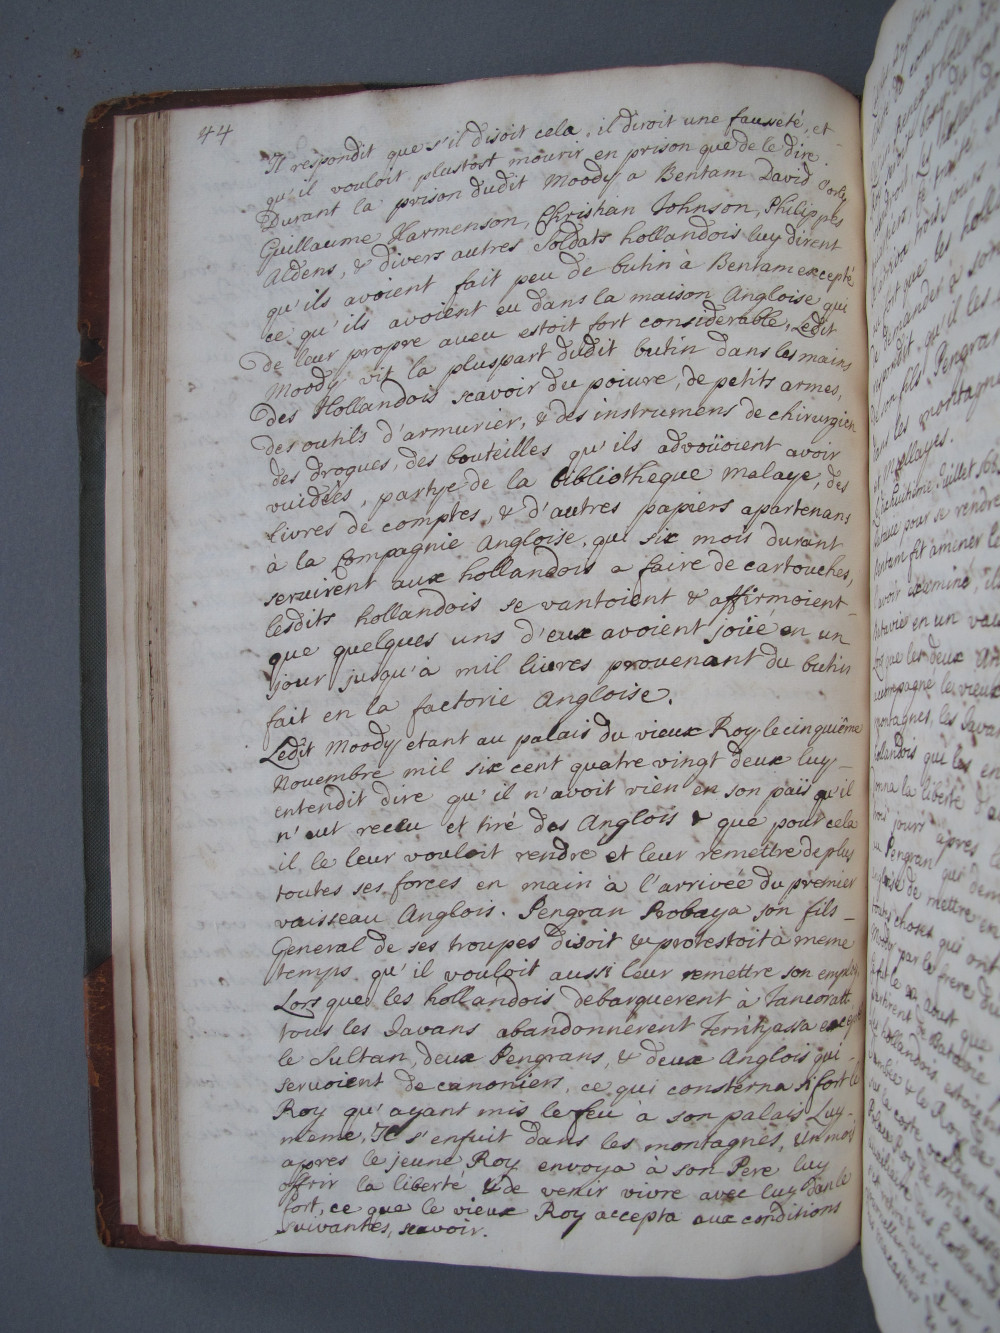 44
Il respondit que s'il disoit cela, il diroit une fausseté, et
qu'il vouloit plustost mourir en prison que de le dire.
Durant la prison dudit Moody a Bentam David
Guillaume Harmenson, Christian Johnson, Philippes
Aldens, & divers autres Soldats hollandois luy dirent
qu'ils avoient fait peu de butin à Bentam excepté
ce qu'ils avoient eu dans la maison Angloise qui
de leur propre aveu estoit fort considerable, Ledit
Moody vit la pluspart dudit butin dans les mains
des Hollandois scavoir du poivre, de petits armes,
des outils d'armurier, & des instrumens de chirurgien
des drogues, des bouteilles qu'ils advoüoient avoir
vuidées, partye de la bibliotheque malaye, des
livres de comptes, & d'autres papiers apartenans
à la Compagnie Angloise, qui six mois durant
servirent aux hollandois a faire de cartouches,
lesdits hollandois se vantoient & affirmoient
que quelques uns d'eux avoient joüé en un
jour jusqu'à mil livres provenant du butin
fait en la factorie Angloise.
Ledit Moody etant au palais du vieux Roy le cinquiême
Novembre mil six cent quatre vingt deux luy
entendit dire qu'il n'avoit rien en son païs qu'il
n'eut receu et tiré des Anglois & que pour cela
il le leur vouloit rendre et leur remettre de plus
toutes ses forces en main à l'arrivée du premier
vaisseau Anglois. Pengran Probaya son fils
General de ses troupes disoit & protestoit à meme
temps qu'il vouloit aussi leur remettre son employ
Lors que les hollandois debarquerent à Tancoratt
tous les Javans abandonnerent excepté
le Sultan, deux Pengrans, & deux Anglois qui
servoient de canoniers, ce qui consterna si fort le
Roy qu'ayant mis le feu a son palais Luy
meme, Il s'enfuit dans les montagnes, un mois
apres le jeune Roy envoya à son Pere luy
offrir la liberté & de venir vivre avec luy dans le
fort, ce que le vieux Roy accepta aux conditions
suivantes, scavoir.